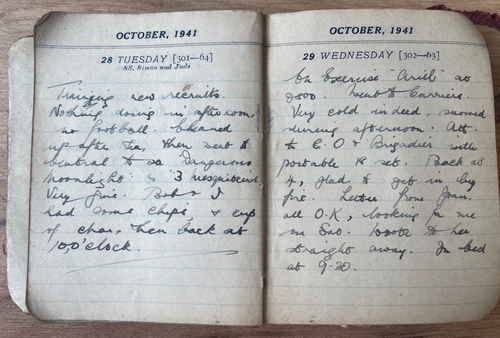 OCTOBER, 1941
28 TUESDAY [301—64]
SS. Simon and Jude
Training new recruits.
Nothing doing in afternoon,
no football. Cleaned
up after tea, then went to
Central to see Dangerous
Moonlight & 3 mesquiteers
Very fine. Bob & I
had some chips, & cup
of char, then back at
10,o'clock.
OCTOBER, 1941
29 WEDNESDAY [302—63]
On Exercise "Ariel" at
0800. Went to Carriers.
Very cold indeed, snowed
during afternoon. Att.
to C.O & Brigadier with
portable 18 set. Back at
4, glad to get in by
fire. Letter from Joan.
all O.K, looking for me
on Sat. Wrote to her
straight away. In bed
at 9-30.